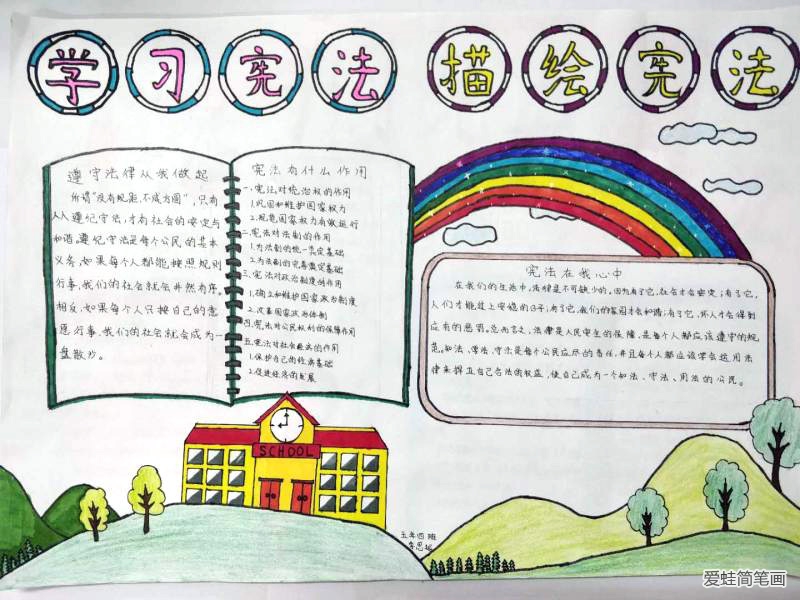 学习宪法 描绘宪法
遵守法律从我做起
所谓“没有规距,不成方圆”,只有
人人遵纪守法,才有社会的安定与
和谐。遵纪守法是每个公民的基本
义务,如果每个人都能按照规则
行事,我们的社会就会井然有序。
相反,如果每个人只按自己的意
愿行事,我们的社会就会成为一
盘散沙。
宪法有什么作用
一、宪法对统治权的作用
1.巩固和维护国家权力
2.规范国家权力有效运行
二、宪法对法制的作用
1.为法制的统一奠定基础
2.为法制的完善奠定基础
三、宪法对政治制度的作用
1.确立和维护国家政治制度
2.改革国家政治体制
四、宪法对公民权利的保障作用
五、宪法对社会经济的作用
1.保护自己的经济基础
2.促进经济的发展
宪法在我心中
在我们的生活中,法律是不可缺少的。因为有了它,社会才会安定;有了它,
人们才能过上安稳的日子;有了它,我们的家园才会和谐;有了它,坏人才会得到
应有的惩罚。总而言之,法律是人民寄生的保障,是每个人都应该遵守的规
范。知法、学法、守法是每个公民应尽的责任,并且每个人都应该学会运用法
律来捍卫自己合法的权益,使自己成为一个知法、守法、用法的公民。
SCHOOL
五年四班
李思
爱蛙简笔画